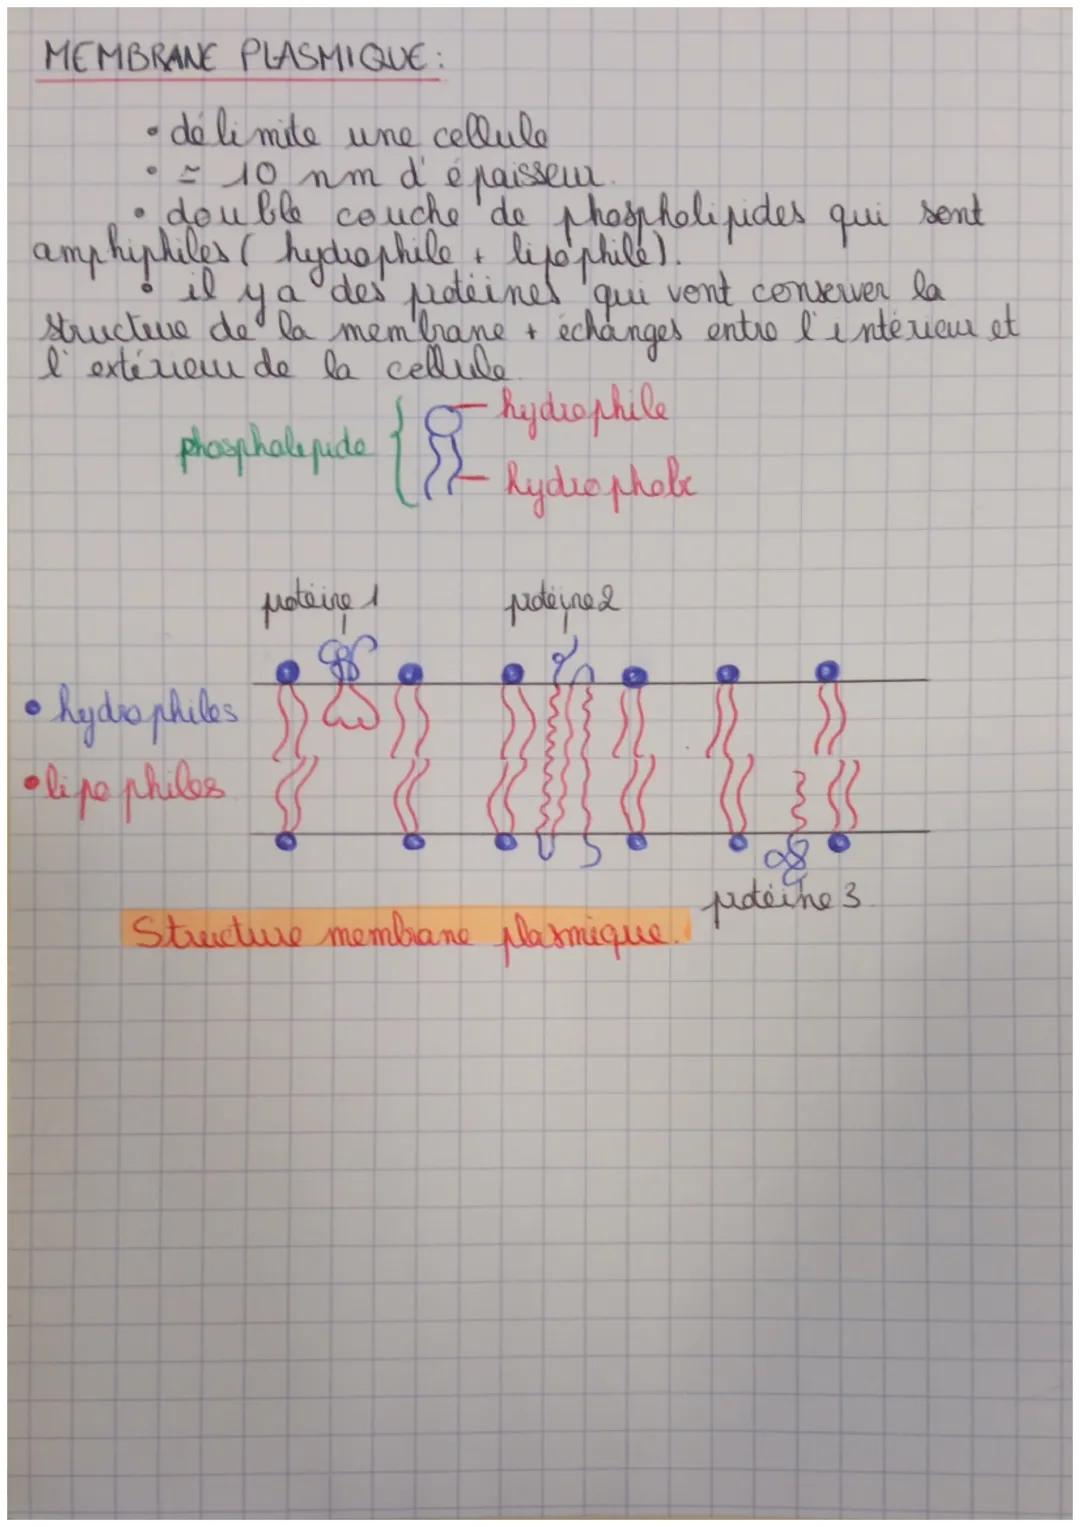 MEMBRANE PLASMIQUE :
• délimite une cellule
• ≃ 10 nm d'épaisseur.
• double couche de phospholipides qui sont
amphiphiles ( hydrophile + lipophile).
• il y a des protéines qui vont conserver la
structure de la membrane + échanges entre l'intérieur et
l'extérieur de la cellule
hydrophile
phospholipide
hydrophobe
protéine 1
protéine 2
• hydrophiles
• lipophiles
protéine 3
Structure membrane plasmique.